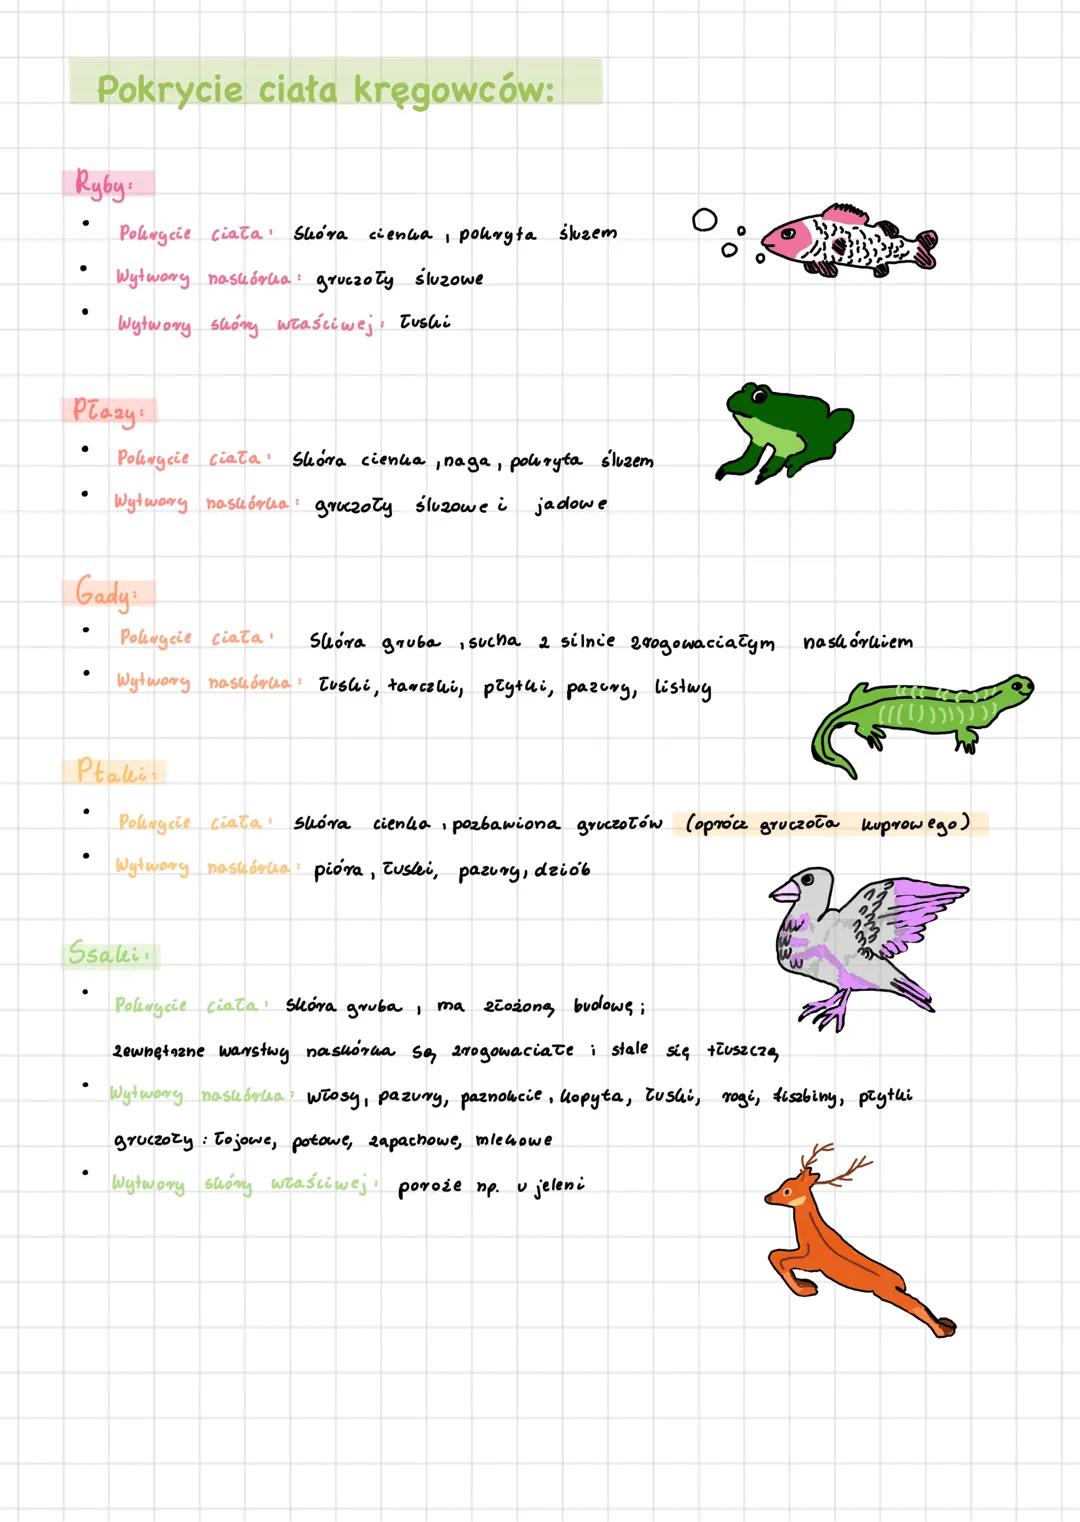 Pokrycie ciała kręgowców:
Ryby:
• Pokrycie ciała: Skóra cienka, pokryta śluzem
• Wytwory naskórka: gruczoły śluzowe
• Wytwory skóry właściwej: łuski
Płazy:
• Pokrycie ciała: Skóra cienka, naga, pokryta śluzem
• Wytwory naskórka: gruczoły śluzowe i jadowe
Gady:
• Pokrycie ciała: Skóra gruba, sucha z silnie zrogowaciałym naskórkiem
• Wytwory naskórka: łuski, tarczki, płytki, pazury, listwy
Ptaki:
• Pokrycie ciała: skóra cienka, pozbawiona gruczołów (oprócz gruczoła kuprowego)
• Wytwory naskórka: pióra, łuski, pazury, dziób
Ssaki:
• Pokrycie ciała: Skóra gruba, ma złożoną budowę;
zewnętrzne warstwy naskórka są zrogowaciałe i stale się tłuszczą
• Wytwory naskórka: włosy, pazury, paznokcie, kopyta, łuski, rogi, fiszbiny, płytki
gruczoły: łojowe, potowe, zapachowe, mlekowe
• Wytwory skóry właściwej: poroże np. u jeleni